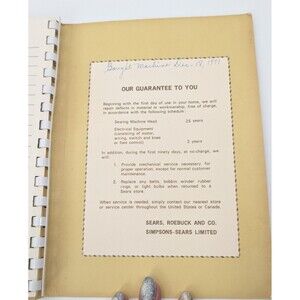 Bought Machine Dec. 18, 1971
OUR GUARANTEE TO YOU
Beginning with the first day of use in your home, we will
repair defects in material or workmanship, free of charge,
in accordance with the following schedule:
Sewing Machine Head 25 years
Electrical Equipment
(consisting of motor,
wiring, switch and knee
or foot control) 2 years
In addition, during the first ninety days, at no-charge, we will:
1. Provide mechanical service necessary, for
proper operation, except for normal customer
maintenance.
2. Replace any belts, bobbin winder rubber
rings, or light bulbs when returned to a
Sears store.
When service is needed, simply contact our nearest store
or service center throughout the United States or Canada.
SEARS, ROEBUCK AND CO.
SIMPSONS-SEARS LIMITED